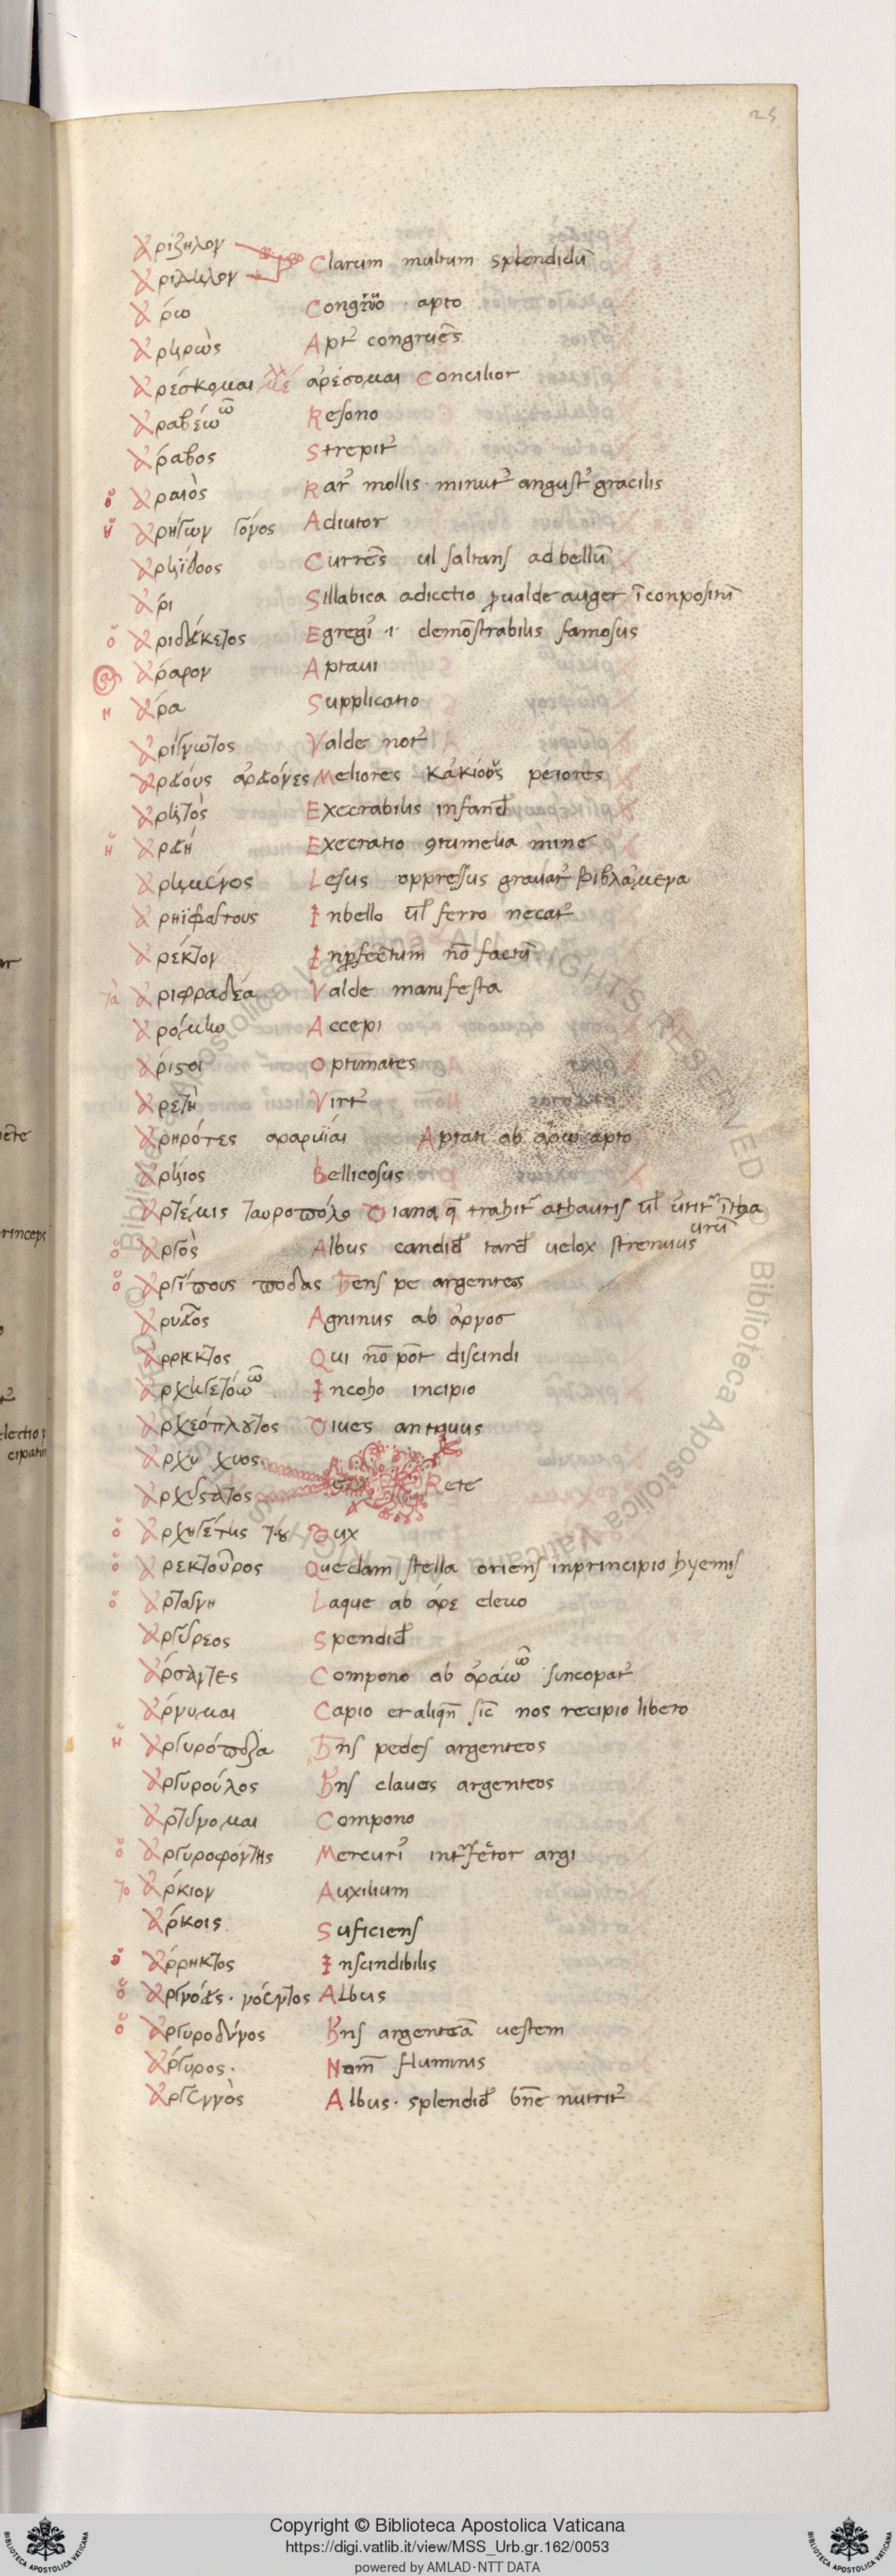 25
Ἀρίζηλον
Ἀρίδηλον Clarum multum splendidū
Ἄρω Congruo · apto
Ἀρηρὼς Apt᷒ congruēs
Ἀρέσκομαι ἀρέσομαι Concilior
Ἀραβέω ῶ Resono
Ἄραβος Strepit᷒
ὁ Ἀραιὸς Rar᷒ mollis · minut᷒ angust᷒ gracilis
Ἀρήγων γόνος Adiutor
Ἀρηΐθοος Currēs ul saltans ad bellū
Ἄρι Sillabica adiectio ꝓ ualde auget ī conpositiē
ὁ Ἀριδείκετος Egregi᷒ · i · demōstrabilis famosus
Ἄραρον Aptaui
ἡ Ἄρα Supplicatio
Ἀρίγνωτος Valde not᷒
Ἀρείους ἀρείονες Meliores κακίους peiores
Ἀρητὸς Execrabilis infand᷒
ἡ Ἀρειή Execratio ꝯtumelia mine
Ἀρημένος Lesus oppressus grauat᷒ βιβλάμενα
Ἀρηϊφάτους Inbello ul̄ ferro necat᷒
Ἄρεκτον Inꝑfectum nō factū
τὰ Ἀριφραδέα Valde manifesta
Ἀροίμην Accepi
Ἄριστοι Optimates
Ἀρετὴ Virt᷒
Ἀρηρότες αραρυῖαι Aptati ab ἄρω apto
Ἀρήιος Bellicosus
Ἄρτεμις ταυροπόλο Diana q̄ trahit᷒ athauris ul̄ utit᷒ ī tha
urū
ὁ Ἀργὸς Albus candid᷒ tard᷒ uelox strenuus
ὁ Ἀργίπους ποδας Hens pe argenteos
Ἀρνεῖος Agninus ab ἄρνος
Ἄρρηκτος Qui nō pōt discindi
Ἀρχηγετέω ῶ Incoho incipio
Ἀρχεόπλουτος Diues antiquus
Ἄρχυ χυος
Ἀρχύστατος Rete
ὁ Ἀρχηγέτης τ·ου Dux
ὁ Ἀρεκτοῦρος Quedam stella oriens inprincipio hyemis
ὁ Ἀρτάνη Laque ab ἄρε eleuo
Ἀργύρεος Spendid᷒
Ἄρσαντες Compono ab ἀράω ῶ sincopat᷒
Ἄρνυμαι Capio et aliqn̄ sic̄ nos recipio libero
ἡ Ἀργυρόπεζα Hn̄s pedes argenteos
Ἀργυρούλος Hn̄s claues argenteos
Ἀρτύνομαι Compono
ὁ Ἀργυροφόντης Mercuri᷒ int᷒fetor argi
το Ἄρκιον Auxilium
Ἄρκοις Suficiens
ὁ Ἄρρηκτος Inscindibilis
ὁ Ἀργινόεις · νόεντος Albus
ὁ Ἀργυροδύνος Hn̄s argenteā uestem
Ἄργυρος · Nom̄ fluminis
Ἀργεννὸς Albus · splendid᷒ bn̄e nutrit᷒
Copyright © Biblioteca Apostolica Vaticana
https://digi.vatlib.it/view/MSS_Urb.gr.162/0053
powered by AMLAD·NTT DATA